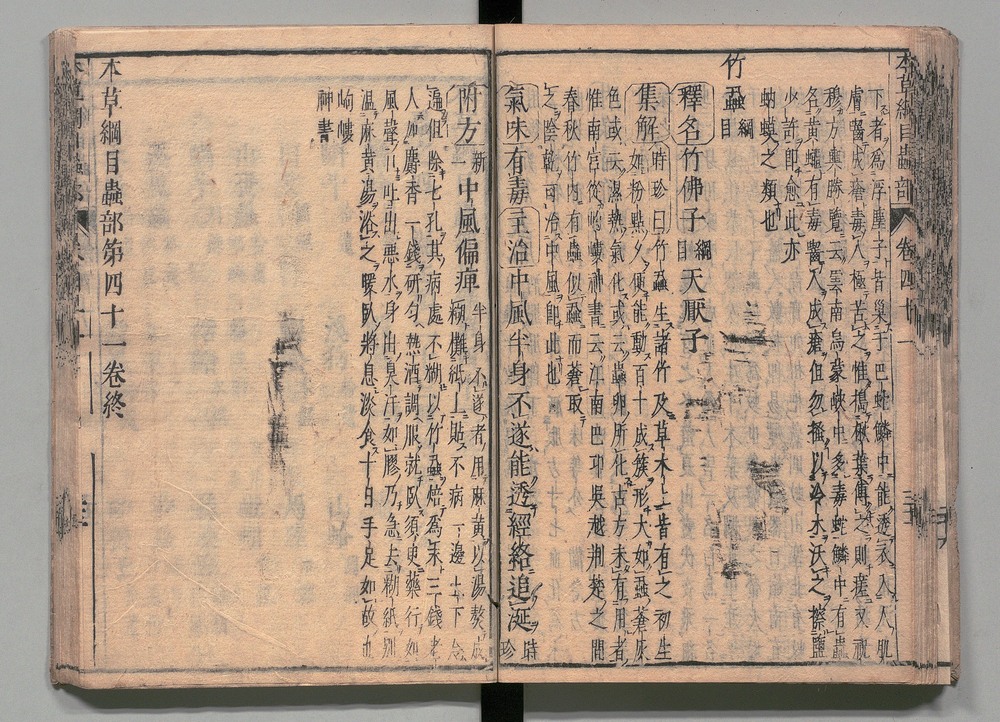 本草綱目蟲部 卷四十一
下者爲浮塵子皆巢于巴蛇鱗中能透衣入人肌
膚囓成瘡毒人極苦之惟搗楸葉傅之則瘥又
方輿勝覽云雲南烏蒙峽中多毒蛇鱗中有蟲
名黄蠅有毒囓人成瘡但勿搔以冷水沃之擦鹽
少許即愈此亦
蚋蟆之類也
竹蝨 綱目
釋名 竹佛子 綱目 天厭子
集解 時珍曰竹蝨生諸竹及草木上皆有之初生
如粉點久便能動百十成簇形大如蝨蒼灰
色或云濕熱氣化或云蟲卵所化古方未有用者
惟南宮從岣嶁神書云江南巴邛吳越荆楚之間
春秋竹内有蟲似蝨而蒼取
之陰乾可治中風即此也
氣味有毒 主治 中風半身不遂能透經絡追涎 時珍
附方 新一 中風偏痺 半身不遂者用麻黄以湯熬成
糊攤紙上貼不病一邊上下令
遍但除七孔其病處不糊以竹蝨焙爲末三錢老
人加麝香一錢研勻熱酒調服就臥須臾藥行如
風聲口吐出惡水身出臭汗如膠乃急去糊紙别
温麻黄湯浴之暖臥將息淡食十日手足如故也
岣嶁
神書
本草綱目蟲部第四十一卷終